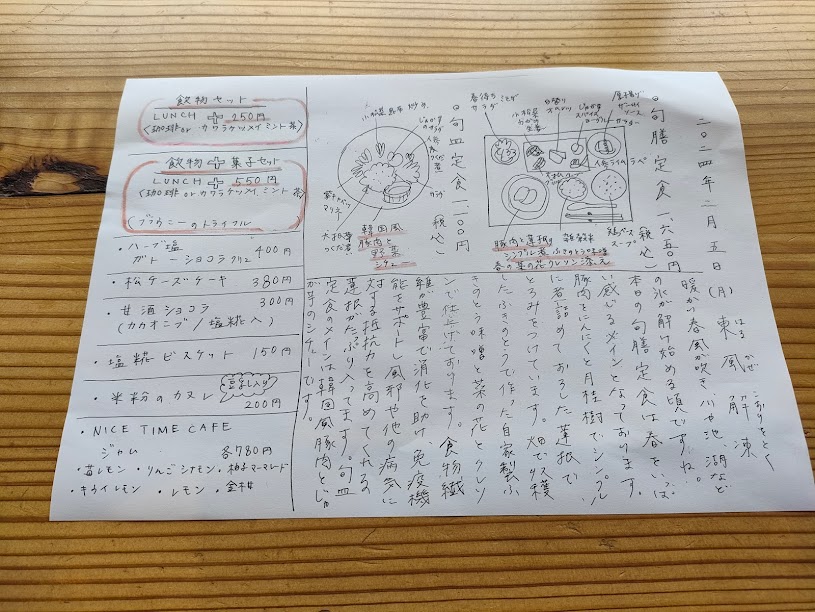 二〇二四年二月五日(月) 東風解凍
はるかぜこおりをとく
暖かい春風が吹き、川や池、湖など
の氷が解け始める頃ですね。
本日の旬膳定食は春をいっぱ
い感じるメインとなっております。
豚肉をにんにくと月桂樹でシンプル
に煮詰めておろした蓮根で
とろみをつけています。畑で収穫
したふきのとうで作った自家製ふ
きのとう味噌と菜の花とクレソ
ンで仕上げております。食物繊
維が豊富で消化を助け、免疫機
能をサポートし風邪や他の病気に
対する抵抗力を高めてくれる
蓮根がたっぷり入ってます。旬皿
定食のメインは韓国風豚肉とじゃ
が芋のシチューです。
旬膳定食 一、六五〇円(税込)
春待ちミモザ
サラダ
日替り
厚揚げ
ソース
豚肉と蓮根の
シンプル煮 ふきのとう味噌
春の菜の花クレソン添え
雑穀米
スープ
旬皿定食 一、一〇〇円(税込)
じゃが芋
のサラダ
サラダ
マリネ
韓国風
豚肉と
野菜
シチュー
飲物セット
LUNCH + 250円
(珈琲 or カワラケツメイミント茶)
飲物+菓子セット
LUNCH + 550円
(珈琲 or カワラケツメイミント茶)
(ブラウニーのトライフル)
・ハーブ塩
ガトーショコラ 400円
・松チーズケーキ 380円
・甘酒ショコラ 300円
(カカオニブ/塩糀入)
・塩糀ビスケット 150円
・米粉のカヌレ 豆乳入り
200円
・NICE TIME CAFE
ジャム 各780円
・苺レモン ・りんごシナモン ・柚子マーマレード
・キウイレモン ・レモン ・金柑